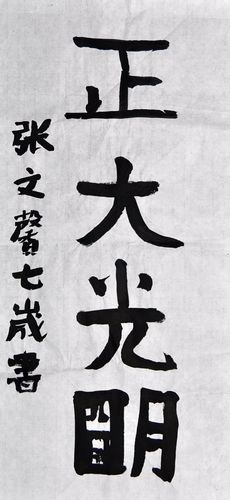 正大光明
张文馨七岁書